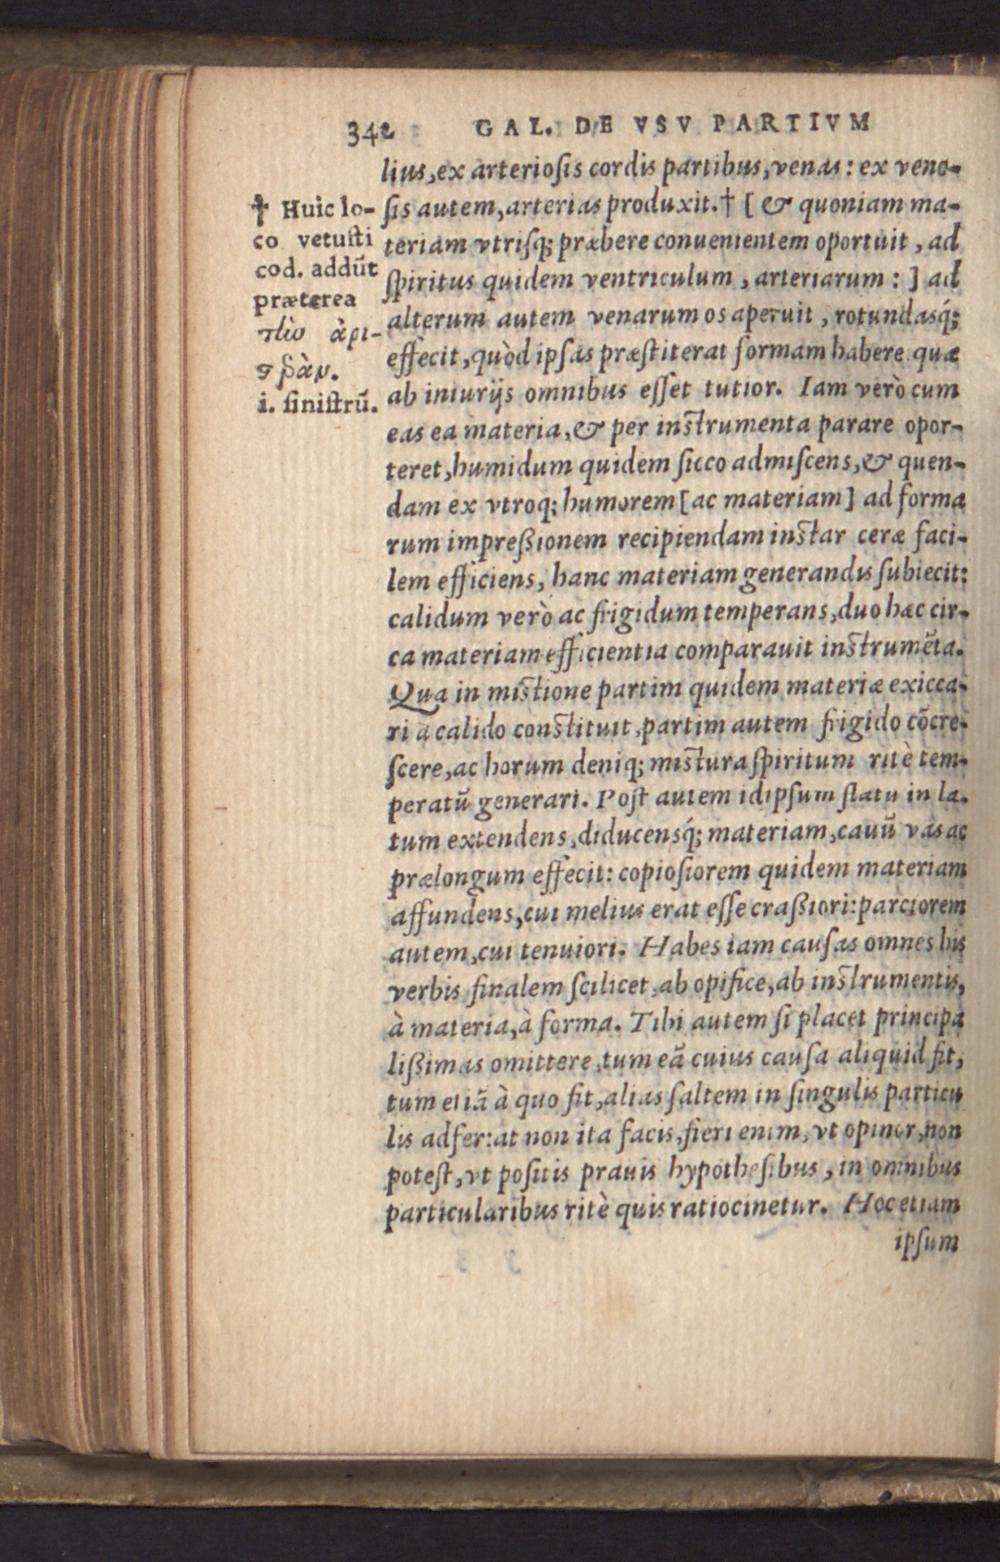 342 GAL. DE VSV PARTIVM
lius, ex arteriosis cordis partibus, venas: ex veno-
sis autem, arterias produxit.† [ & quoniam ma-
teriam vtrisq; præbere conuenientem oportuit, ad
spiritus quidem ventriculum, arteriarum: ] ad
alterum autem venarum os aperuit, rotundasq́;
effecit, quòd ipsas præstiterat formam habere quæ
ab iniurijs omnibus esset tutior. Iam verò cum
eas ea materia, & per instrumenta parare opor-
teret, humidum quidem sicco admiscens, & quen-
dam ex vtroq; humorem [ac materiam] ad forma
rum impreßionem recipiendam instar ceræ faci-
lem efficiens, hanc materiam generandis subiecit:
calidum verò ac frigidum temperans, duo hæc cir-
ca materiam efficientia comparauit instrumēta.
Qua in mistione partim quidem materiæ exicca-
ri a calido constituit, partim autem frigido cōcre-
scere, ac horum deniq; mistura spiritum ritè tem-
peratū generari. Post autem idipsum flatu in la-
tum extendens, diducensq́; materiam, cauū vas ac
prælongum effecit: copiosiorem quidem materiam
affundens, cui melius erat esse craßiori: parciorem
autem, cui tenuiori. Habes iam causas omnes his
verbis finalem scilicet, ab opifice, ab instrumentis,
à materia, à forma. Tibi autem si placet principa
lißimas omittere, tum eā cuius causa aliquid fit,
tum etiā à quo fit, alias saltem in singulis particu
lis adfer: at non ita facis, fieri enim, vt opinor, non
potest, vt positis prauis hypothesibus, in omnibus
particularibus ritè quis ratiocinetur. Hoc etiam
ipsum
† Huic lo-
co vetusti
cod. addūt
præterea
τὴν ἀρι-
στερὰν.
i. sinistrū.